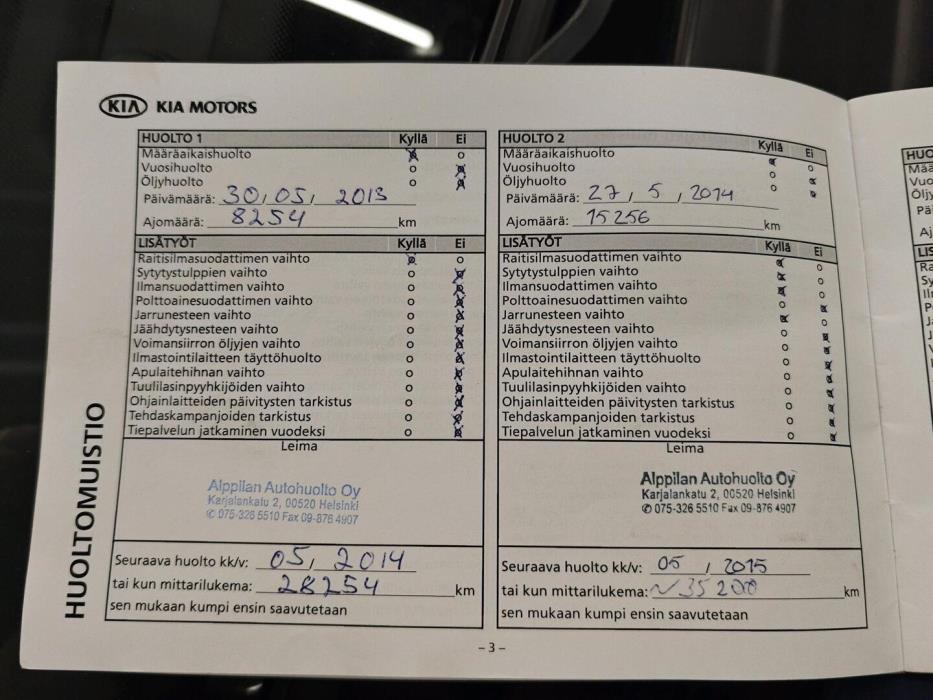 KIA KIA MOTORS
HUOLTO 1 Kyllä Ei
Määräaikaishuolto
Vuosihuolto
Öljyhuolto
Päivämäärä: 30,05, 2013
Ajomäärä: 8254 km
LISÄTYÖT Kyllä Ei
Raitisilmasuodattimen vaihto
Sytytystulppien vaihto
Ilmansuodattimen vaihto
Polttoainesuodattimen vaihto
Jarrunesteen vaihto
Jäähdytysnesteen vaihto
Voimansiirron öljyjen vaihto
Ilmastointilaitteen täyttöhuolto
Apulaitehihnan vaihto
Tuulilasinpyyhkijöiden vaihto
Ohjainlaitteiden päivitysten tarkistus
Tehdaskampanjoiden tarkistus
Tiepalvelun jatkaminen vuodeksi
Leima
Alppilan Autohuolto Oy
Karjalankatu 2, 00520 Helsinki
✆ 075-326 5510 Fax 09-876 4907
Seuraava huolto kk/v: 05, 2014
tai kun mittarilukema: 28254 km
sen mukaan kumpi ensin saavutetaan
HUOLTO 2 Kyllä Ei
Määräaikaishuolto
Vuosihuolto
Öljyhuolto
Päivämäärä: 27, 5, 2014
Ajomäärä: 15256 km
LISÄTYÖT Kyllä Ei
Raitisilmasuodattimen vaihto
Sytytystulppien vaihto
Ilmansuodattimen vaihto
Polttoainesuodattimen vaihto
Jarrunesteen vaihto
Jäähdytysnesteen vaihto
Voimansiirron öljyjen vaihto
Ilmastointilaitteen täyttöhuolto
Apulaitehihnan vaihto
Tuulilasinpyyhkijöiden vaihto
Ohjainlaitteiden päivitysten tarkistus
Tehdaskampanjoiden tarkistus
Tiepalvelun jatkaminen vuodeksi
Leima
Alppilan Autohuolto Oy
Karjalankatu 2, 00520 Helsinki
✆ 075-326 5510 Fax 09-876 4907
Seuraava huolto kk/v: 05, 2015
tai kun mittarilukema: ~35200 km
sen mukaan kumpi ensin saavutetaan
HUOLTOMUISTIO
- 3 -